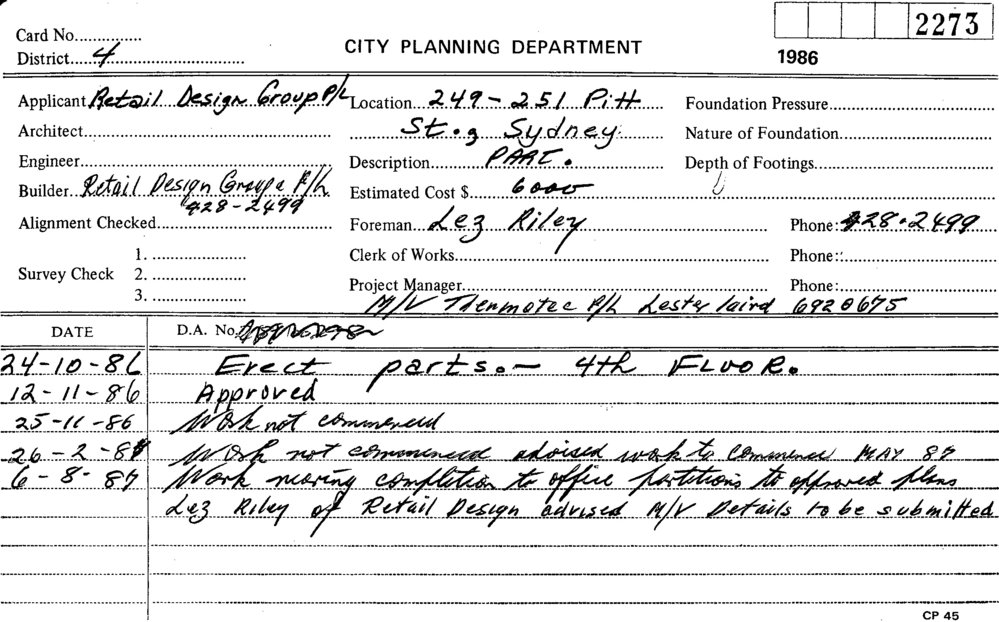 2273
Card No...............
CITY PLANNING DEPARTMENT
District....4............................
1986
Applicant Retail Design Group P/L Location...249-251 Pitt Foundation Pressure
Architect.... St., Sydney. Nature of Foundation
Engineer.... Description....PART. Depth of Footings
Builder..Retail Design Group P/L Estimated Cost $....6000
428-2499
Alignment Checked.... Foreman...Lez Riley Phone: 428-2499
1. .... Clerk of Works.... Phone:
Survey Check 2. ....
Project Manager.... Phone:
3. ....
M/V Thermotec P/L Lester laird 6920675
DATE D.A. No.
24-10-86 Erect parts.- 4th FLOOR.
12-11-86 Approved
25-11-86 Work not commenced
26-2-87 Work not commenced advised work to commence MAY 87
6-8-87 Work nearing completion to office partitions to approved plans
Lez Riley of Retail Design advised M/V Details to be submitted
CP 45